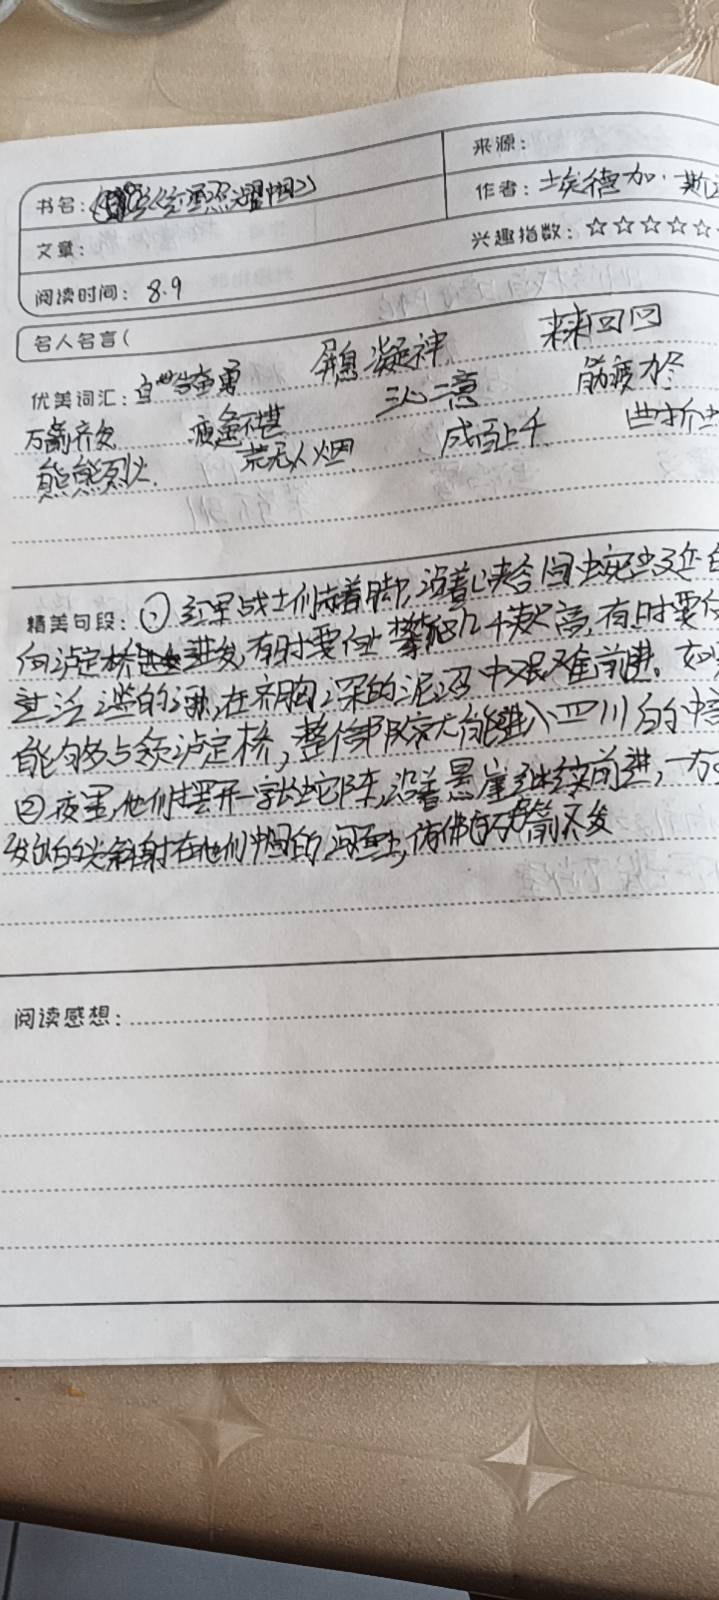 来源：
书名：《红星照耀中国》
作者：埃德加·斯
文章：
兴趣指数：☆☆☆☆☆
阅读时间：8.9
名人名言（
优美词汇：自告奋勇 屏息凝神 来来回回
万箭齐发 疲惫不堪 三心二意 筋疲力尽
熊熊烈火 荒无人烟 成百上千 曲折
精美句段：①红军战士们赤着脚，沿着峡谷间蜿蜒
向泸定桥进发，有时要向上攀爬几千英尺高，有时要
过泛滥的 在齐胸深的泥沼中艰难前进。如
能够占领泸定桥，整 部队就大能进入四川的中
②夜里，他们摆开一字长蛇阵，沿着悬崖继续前进，
发 的 斜射在他们中国的 上，仿佛 万箭齐发
阅读感想：